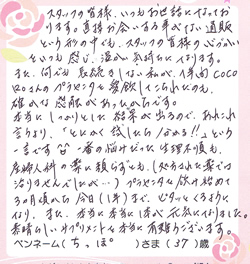 スタッフの皆様、いつもお世話になってお
ります。直接お会いする事がない通販
という形の中でも、スタッフの皆様の心づかい
をいつも感じ、温かい気持ちになります。
また、何でも長続きしない私が、1年間COCO
Rosanのプラセンタを愛飲していられるのも、
確かな感触があったからです。
本当にしっかりとした結果が出るので、あれこれ
言うより、「とにかく試したら分かる!!」という
一言です 一番の悩みだった生理不順も、
産婦人科の薬に頼らずとも、(処方された薬では
治りませんでしたが…)プラセンタを飲み始めて
3ヵ月頃から今日(1年)まで、ピタッとくるように
なり、また、本当に本当に体が元気になりました。
素晴らしいサプリメントに本当に有難うございます。
ペンネーム(ちっぽ)さま(37)歳